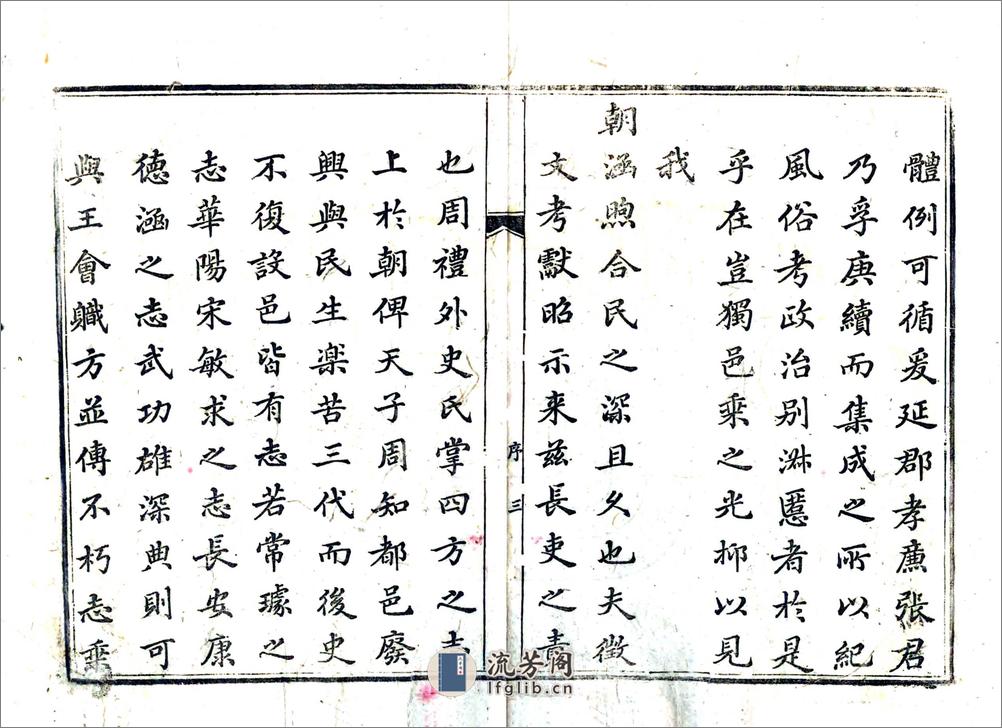 體例可循爰延郡孝廉張君
乃孚庚續而集成之所以紀
風俗考政治別淋慝者於是
乎在豈獨邑乘之光抑以見
我
朝涵煦合民之深且久也夫徵
文考獻昭示来兹長吏之責
序 三
也周禮外史氏掌四方之志
上於朝俾天子周知都邑廢
興與民生楽苦三代而後史
不復設邑皆有志若常璩之
志華陽宋敏求之志長安康
德涵之志武功雄深典則可
與王會職方並傳不朽志乘
流芳阁
lfglib.cn